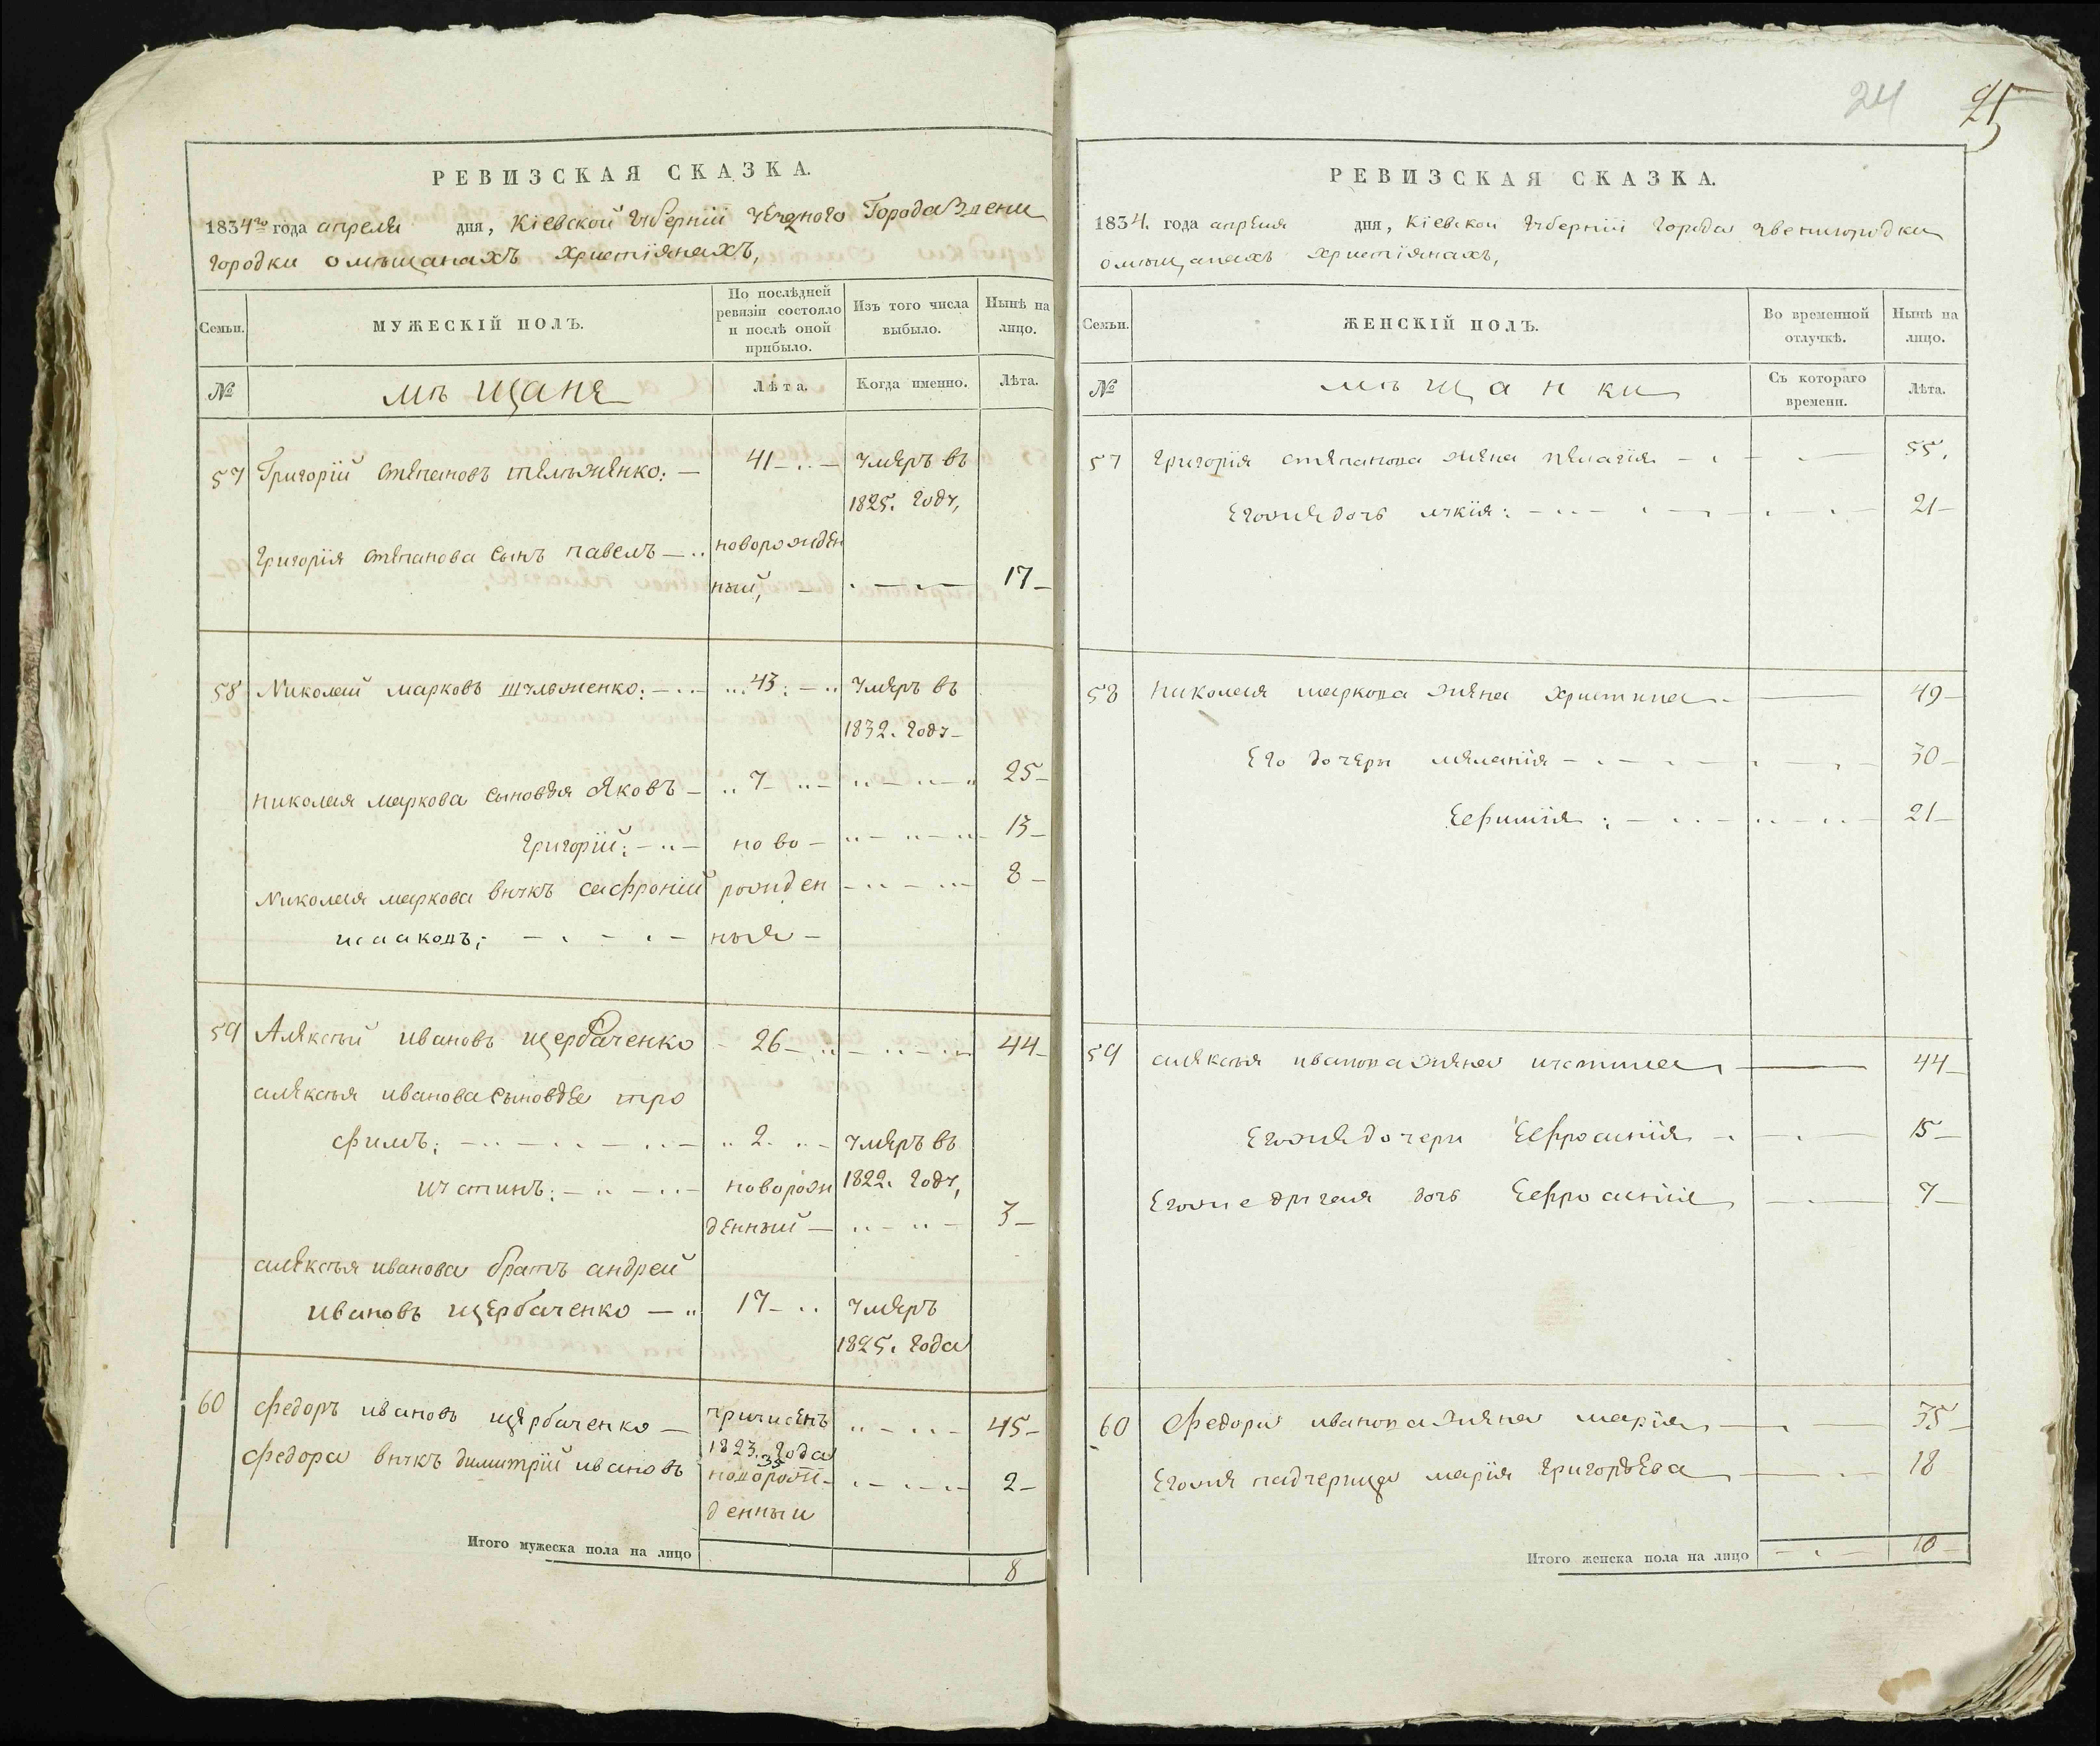 РЕВИЗСКАЯ СКАЗКА.
1834го года апреля дня, Кіевской Губерніи уезного Города Звени
городки о мѣщанахъ христіянахъ,
Семьи.
МУЖЕСКІЙ ПОЛЪ.
По послѣдней ревизіи состояло и послѣ оной прибыло.
Изъ того числа выбыло.
Нынѣ на лицо.
№
мѣщане
Лѣта.
Когда именно.
Лѣта.
57 Григорій Степановъ 41 умеръ въ
1825. году,
Григорія степанова сынъ павелъ новорожден
ный, 17
58 Николай марковъ шульженко: 43: умеръ въ
1832. году
николая маркова сыновья Яковъ 7 25
Григорій: ново 13
Николая маркова внукъ сафроній рожден 8
исааковъ; ныя
59 Алексѣй ивановъ щербаченко 26 44
алексѣя иванова сыновья тро
фимъ; 2 умеръ въ
устинъ: новорож 1822. году,
денный 3
алексѣя иванова братъ андрей
ивановъ щербаченко 17 умеръ
1825. года
60 федоръ ивановъ щербаченко причисленъ 45
1823. года
35
федора внукъ димитрій ивановъ новорож- 2
денныи
Итого мужеска пола на лицо 8
24 25
РЕВИЗСКАЯ СКАЗКА.
1834. года апреля дня, Кіевской Губерніи Города звенигородки
о мѣщанахъ христіянахъ,
Семьи.
ЖЕНСКІЙ ПОЛЪ.
Во временной отлучкѣ.
Нынѣ на лицо.
№
мѣщанки
Съ котораго времени.
Лѣта.
57 григорія степанова жена пелагія 55.
Егоже дочь лукія: 21
58 николая маркова жена христина 49
Его дочери меланія 30
Ефимія: 21
59 алексѣя иванова жена устина 44
Егоже дочери Ефросинія 15
Егоже другая дочь Ефросинія 7
60 федора иванова жена марія 35
Егоже падчерица марія григорьева 18
Итого женска пола на лицо 10